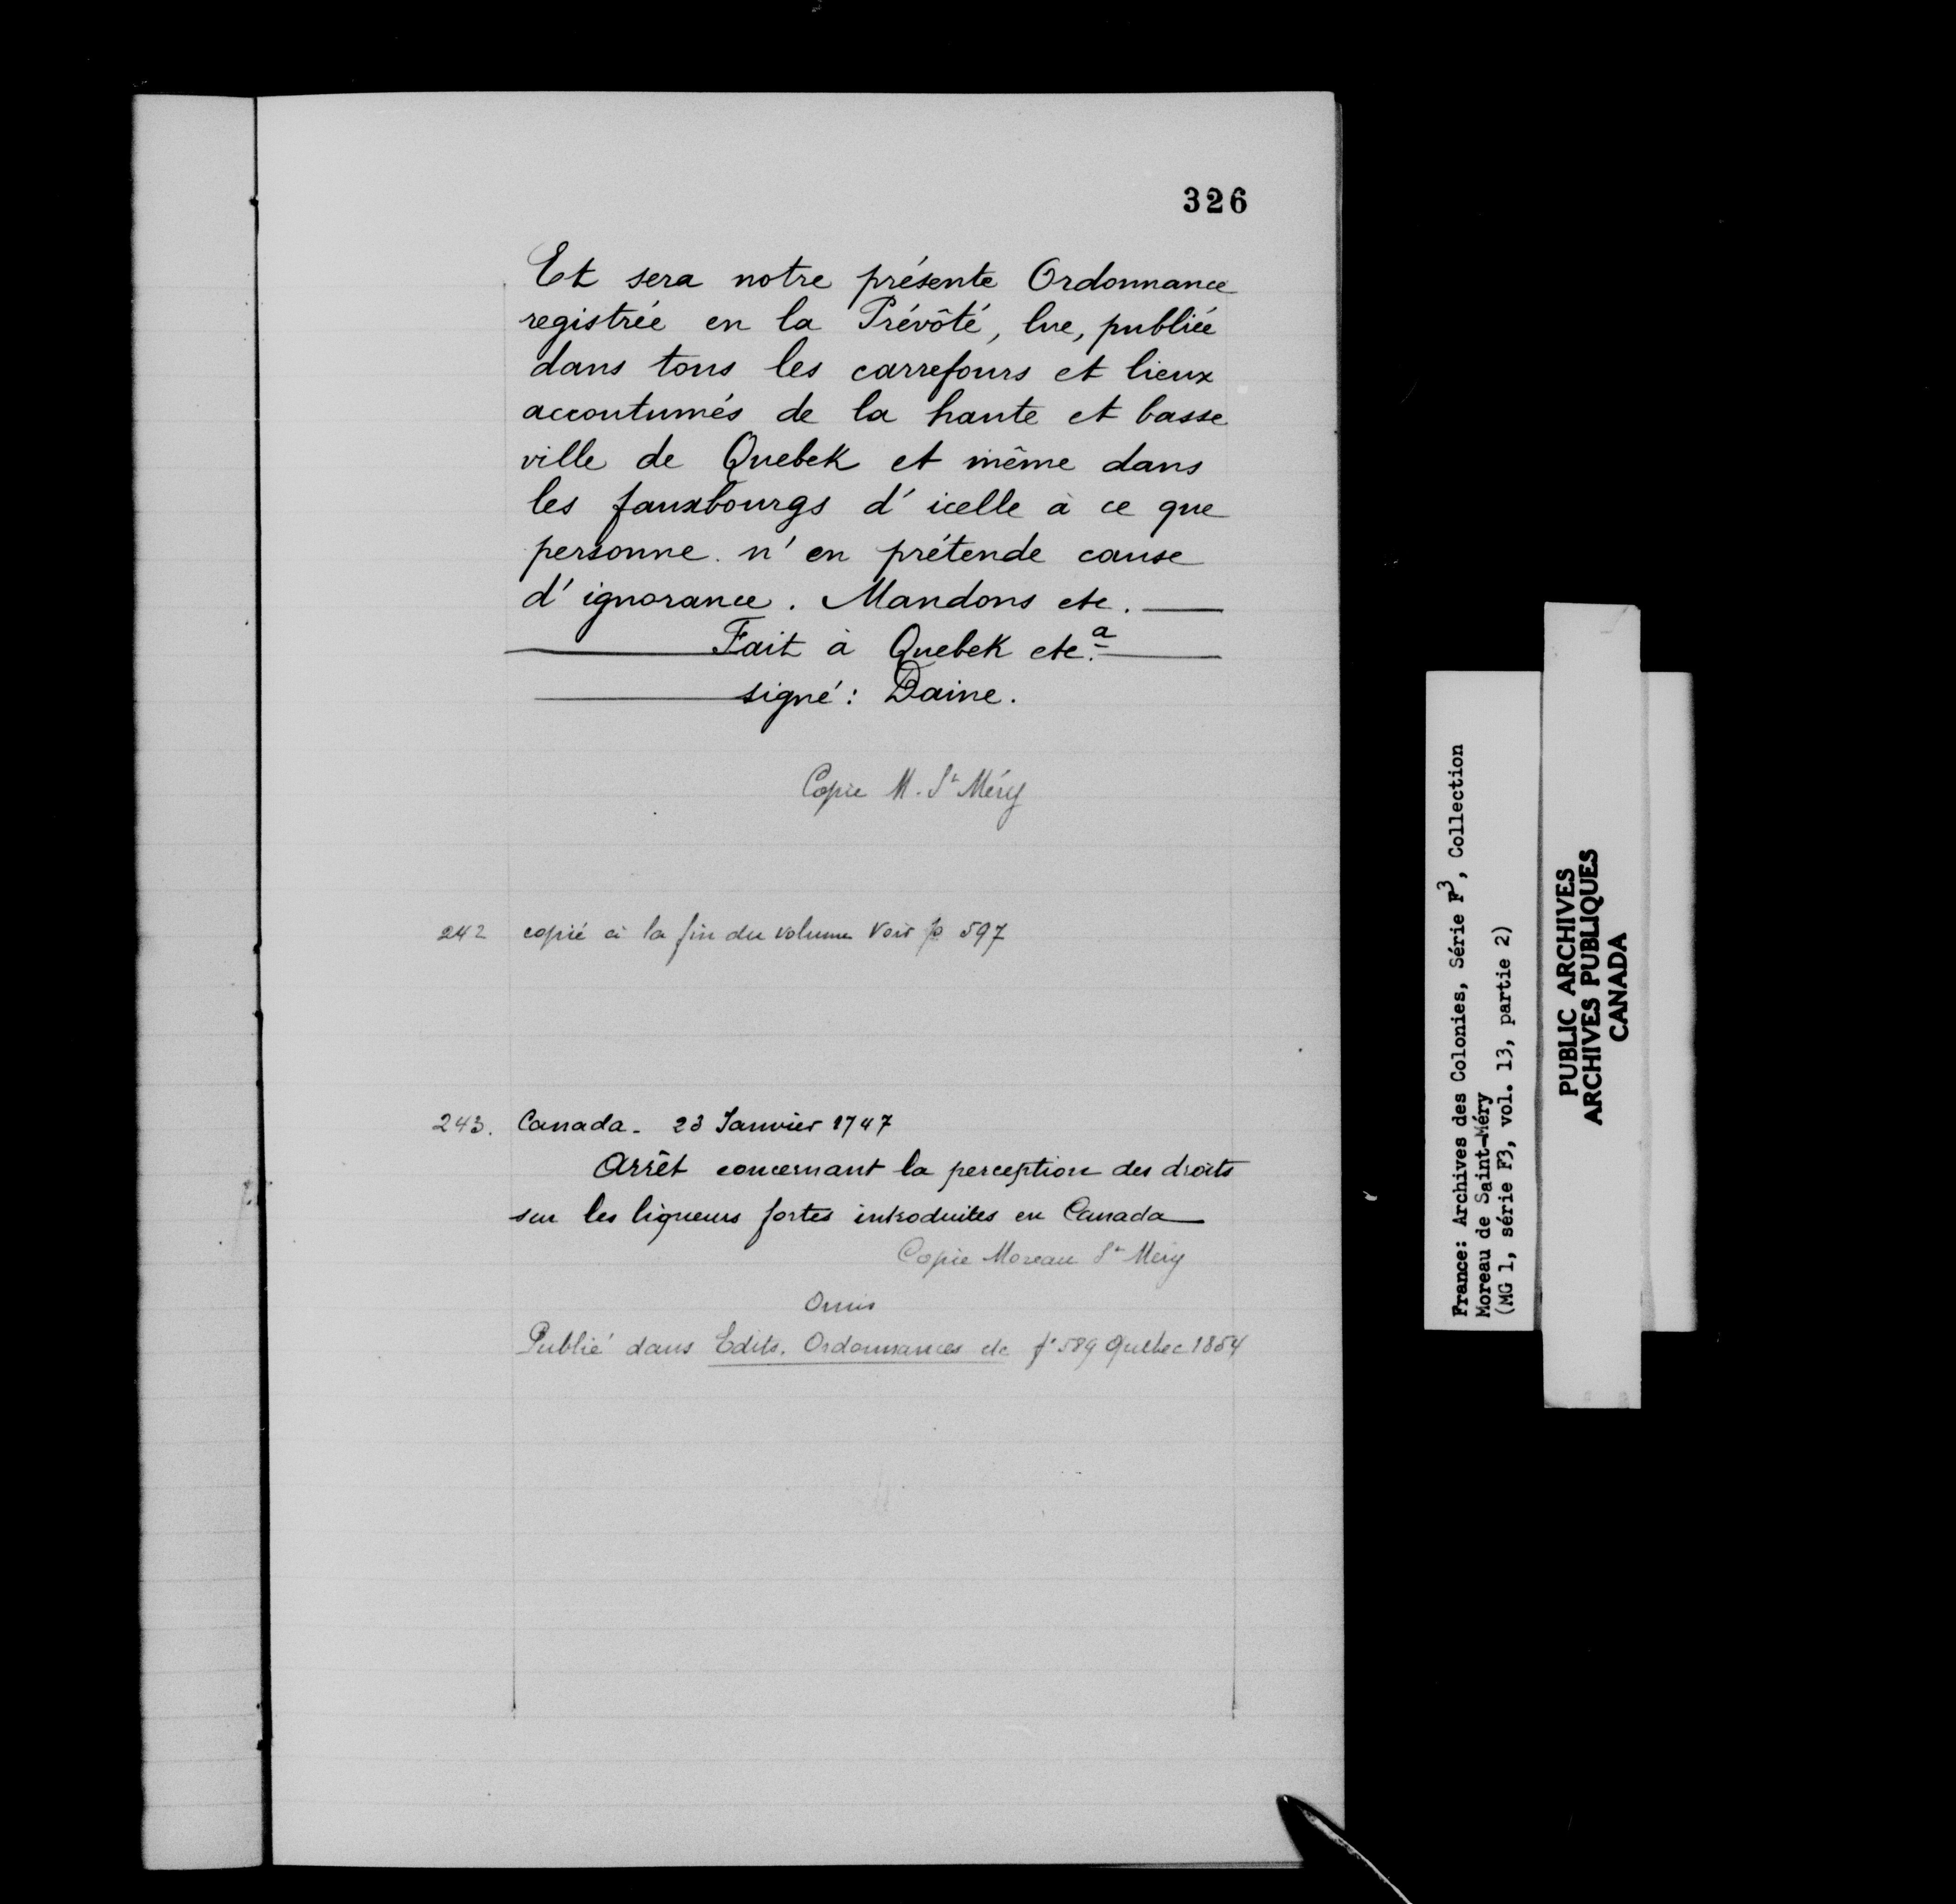 326
Et sera notre présente Ordonnance
registrée en la Prévôté, lue, publiée
dans tous les carrefours et lieux
accoutumés de la haute et basse
ville de Quebek et même dans
les fauxbourgs d'icelle à ce que
personne n'en prétende cause
d'ignorance. Mandons etc.
Fait à Quebek etc.a
signé: Daine.
Copie M. St Méry
242 copié à la fin du volume Voir p 597
243. Canada - 23 Janvier 1747
Arrêt concernant la perception des droits
sur les liqueurs fortes introduites en Canada
Copie Moreau St Méry
Omis
Publié dans Edits, Ordonnances etc fo 589 Québec 1854
France: Archives des Colonies, Série F3, Collection
Moreau de Saint-Méry
(MG 1, série F3, vol. 13, partie 2)
PUBLIC ARCHIVES
ARCHIVES PUBLIQUES
CANADA